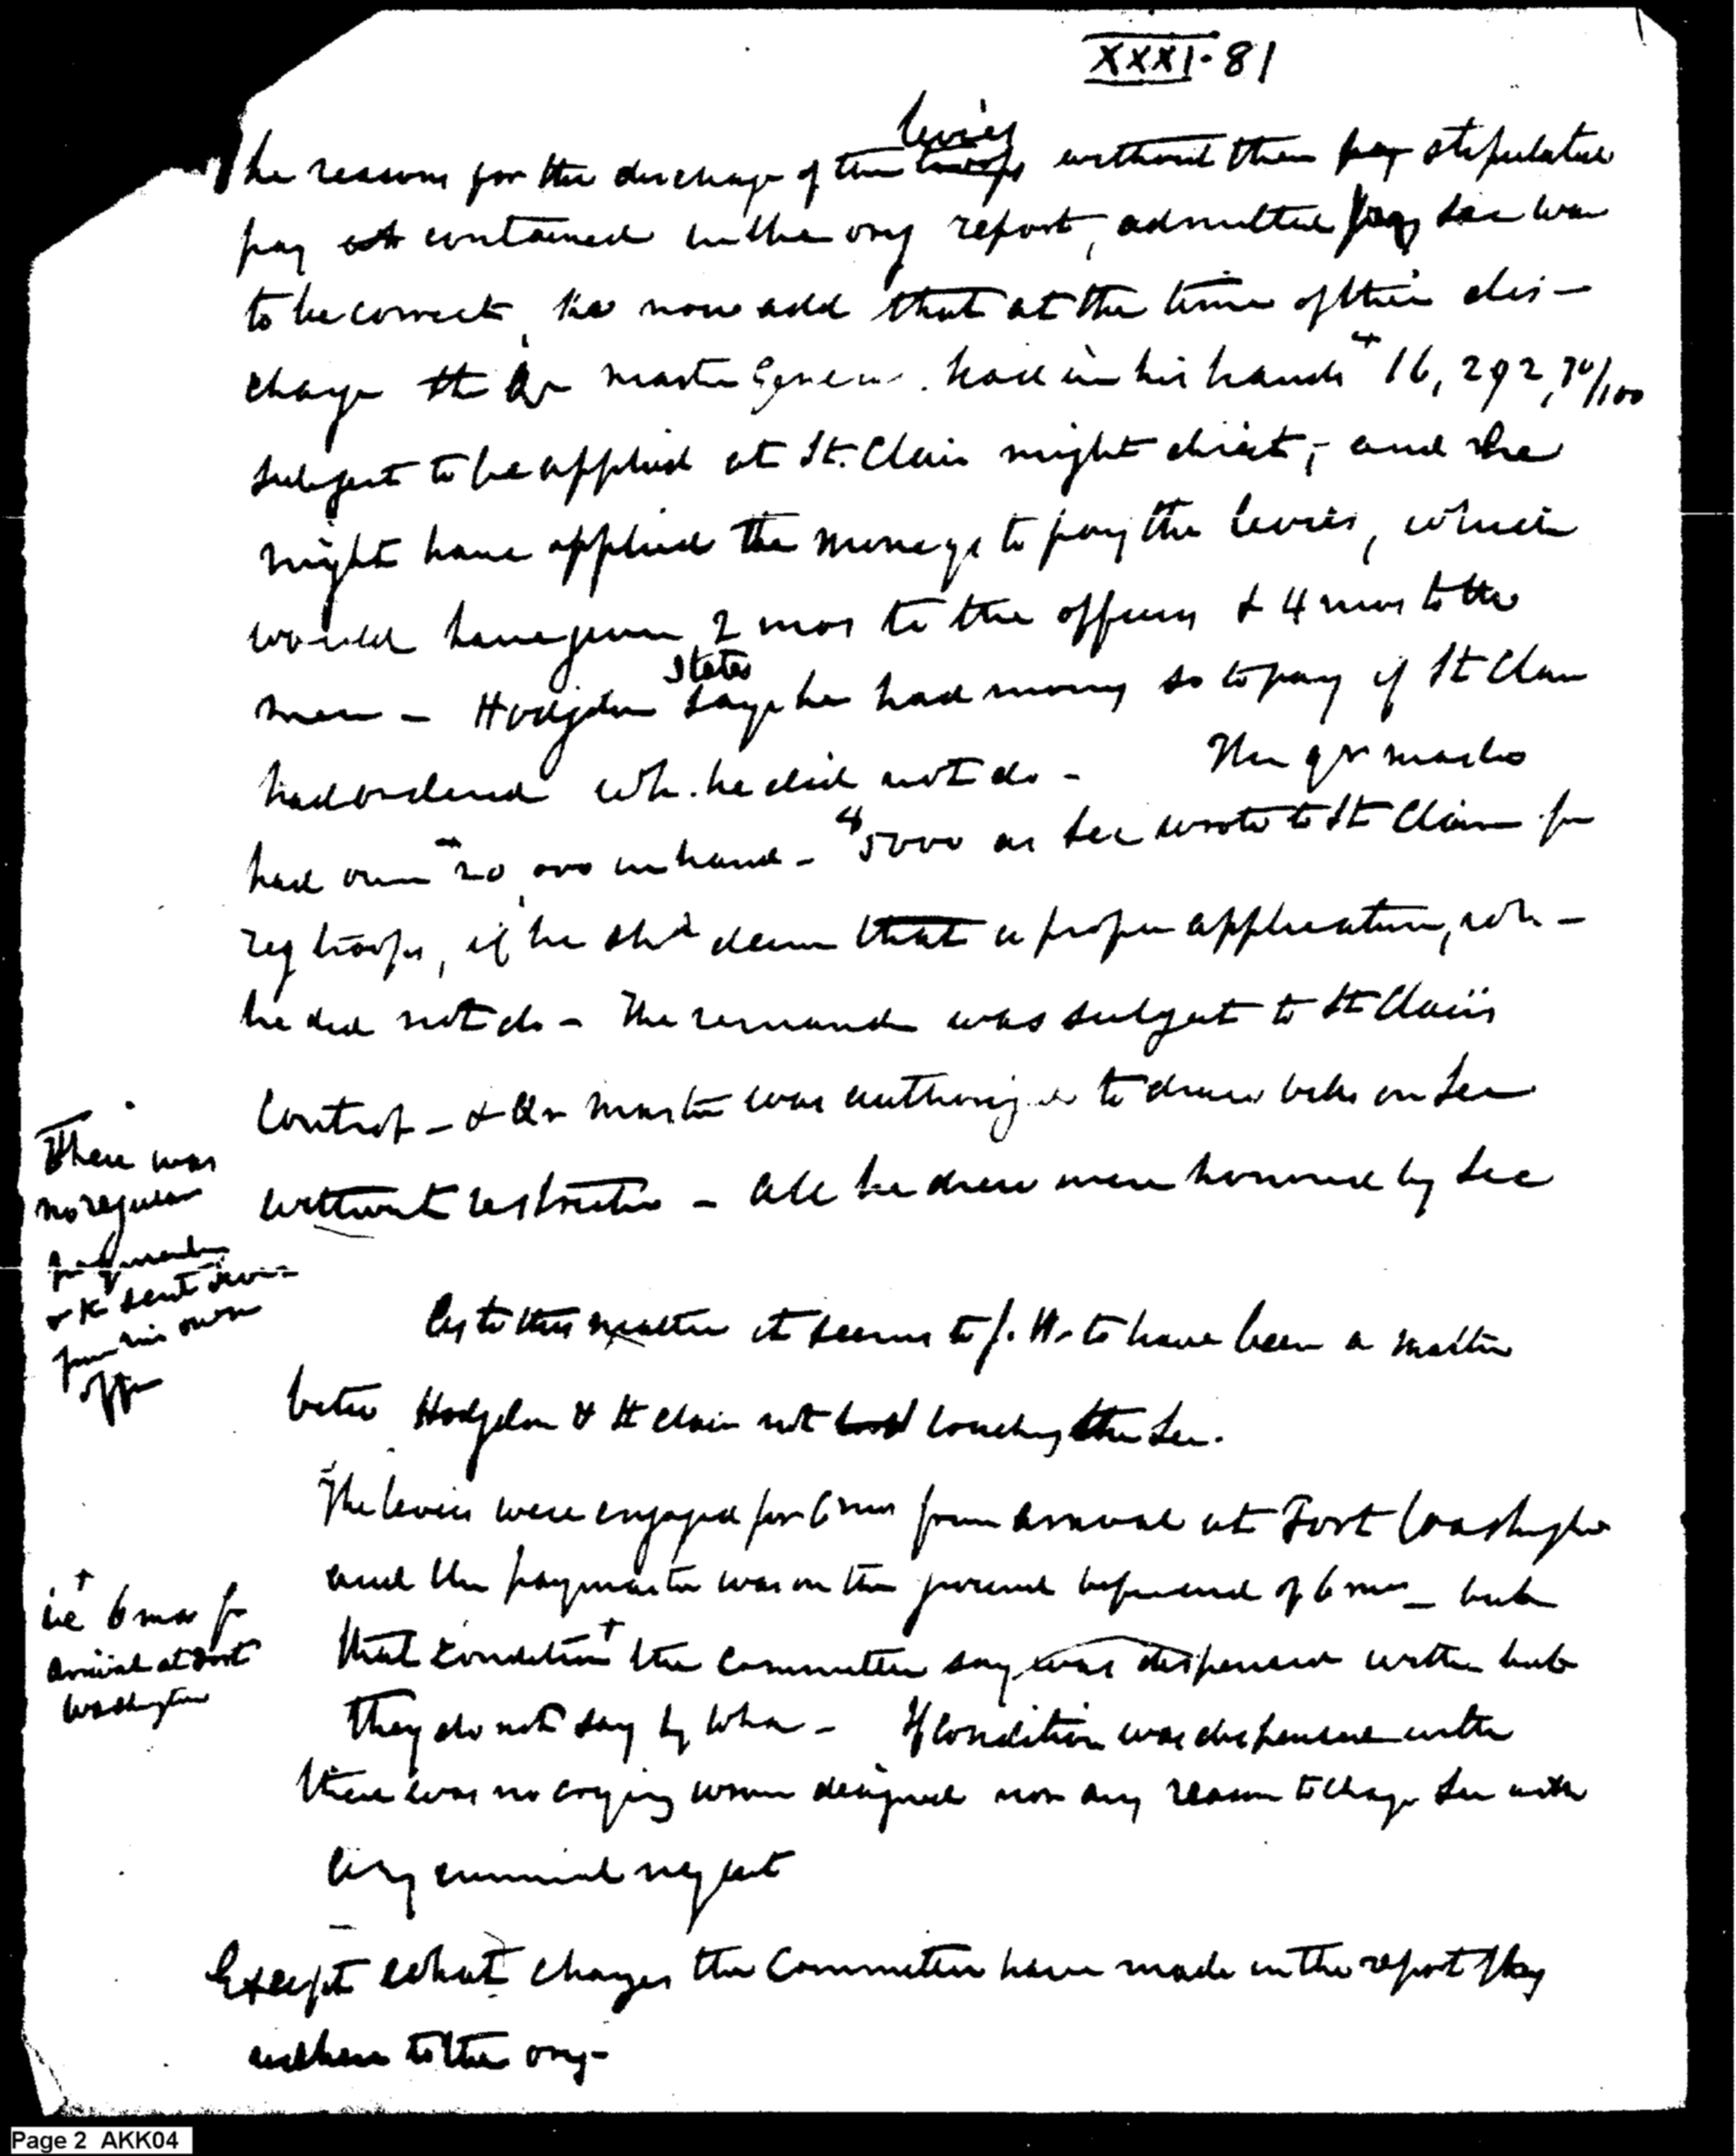 XXXI-81
levies
The reasons for the discharge of the troops without their pay stipulated
pay contained in the orig report, admitted by Sec War
to be correct he now add that at the time of their dis-
charge the Qr master General had in his hands $16,292,70/100
subject to be applied at St. Clair might direct, - and he
might have applied the moneys to pay the levies, which
would have given 2 mos to the officers & 4 mos to the
states
men - Hodgdon says he had money so to pay if St Clair
had ordered wh. he did not do - The qr master
had over $20,000 in hand - $5000 as Sec wrote to St Clair for
reg troops, if he shd deem that a proper application, wh -
he did not do - The remainder was subject to St Clair's
control - & Qr master was authorized to draw bills on Sec
without restriction - all he drew were honored by Sec
There was
no regular
& K sent
from his own
off
As to this matter it seems to J. H. to have been a matter
betw Hodgdon & St Clair not touching the Sec.
The levies were engaged for 6 mos from arrival at Fort Washington
and the paymaster was on the ground before end of 6 mos - but
that condition + the committee say was dispensed with but
they do not say by whom - If condition was dispensed with
there was no crying wrong designed nor any reason to charge Sec with
any criminal neglect
+
ie 6 mos fr
arrival at Fort
Washington
Except what changes the Committee have made in the report they
adhere to the orig -
Page 2 AKK04